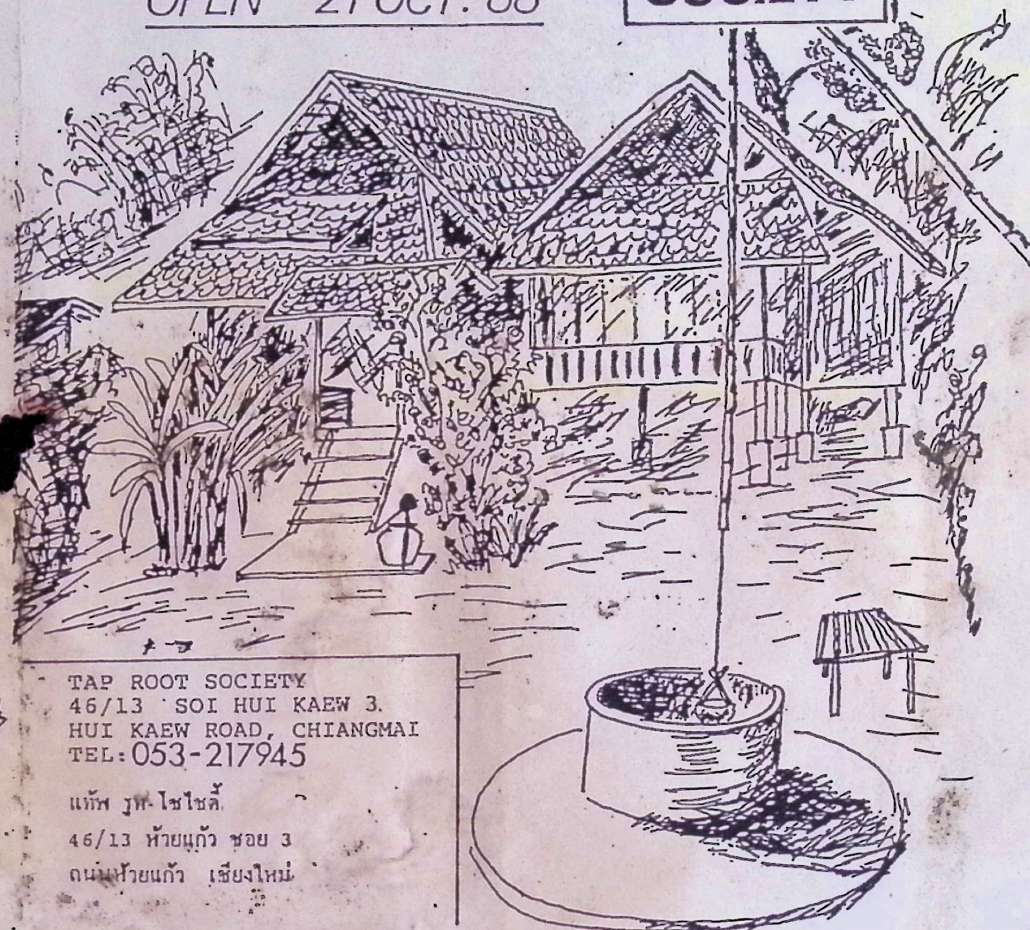 OPEN 21 OCT. 88
SOCIETY
TAP ROOT SOCIETY
46/13 SOI HUI KAEW 3.
HUI KAEW ROAD, CHIANGMAI
TEL: 053-217945
แท๊พ รูท โซไซตี้
46/13 ห้วยแก้ว ซอย 3
ถนนห้วยแก้ว เชียงใหม่